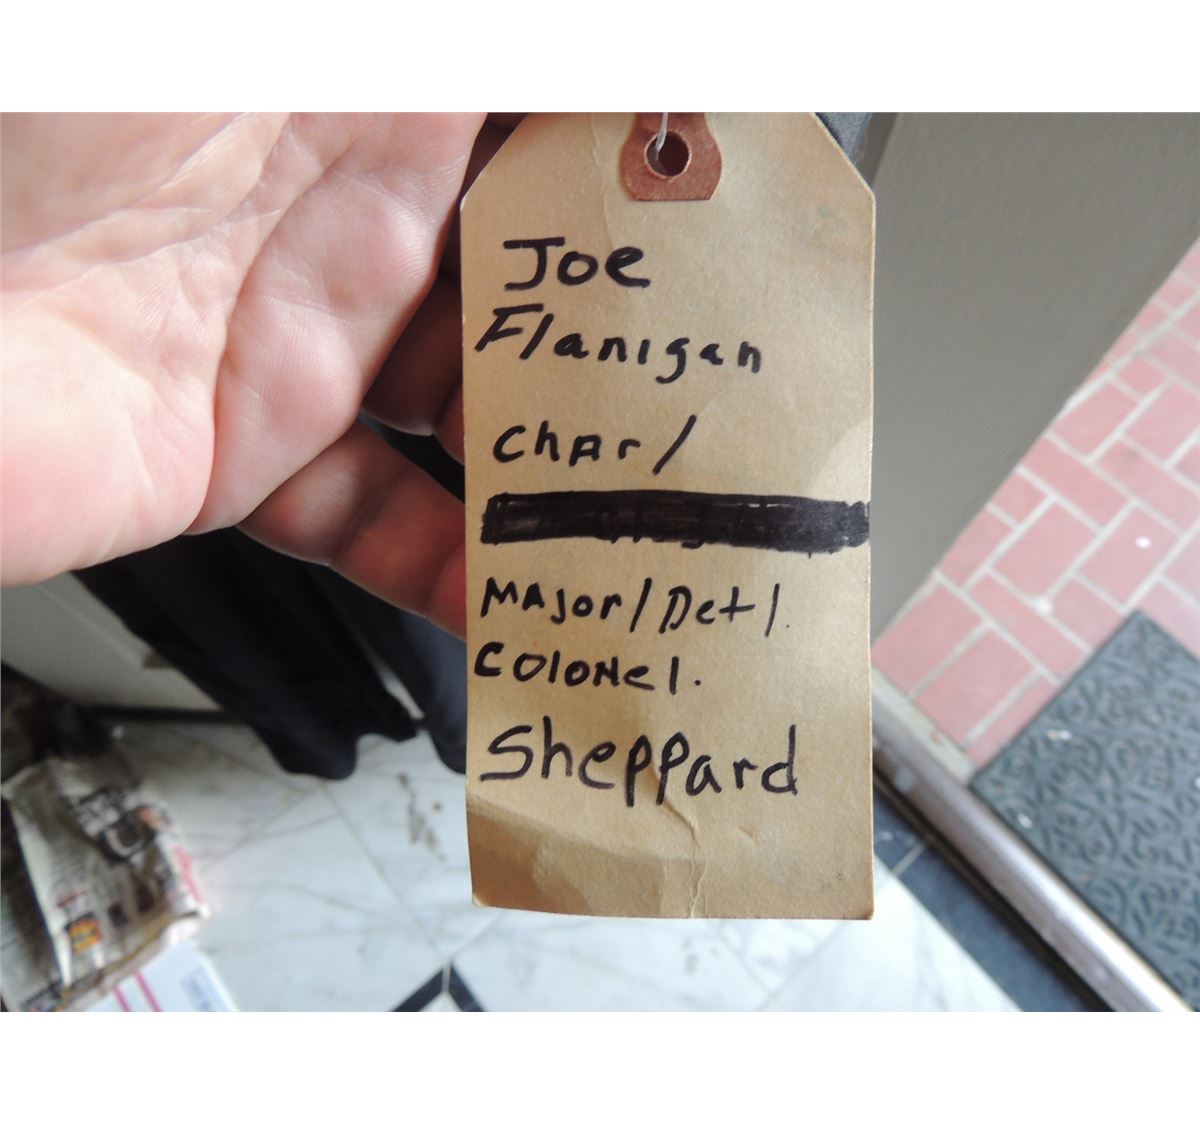 Joe
Flanigan
ChAr/
MAJor/Det/.
COLONel.
Sheppard